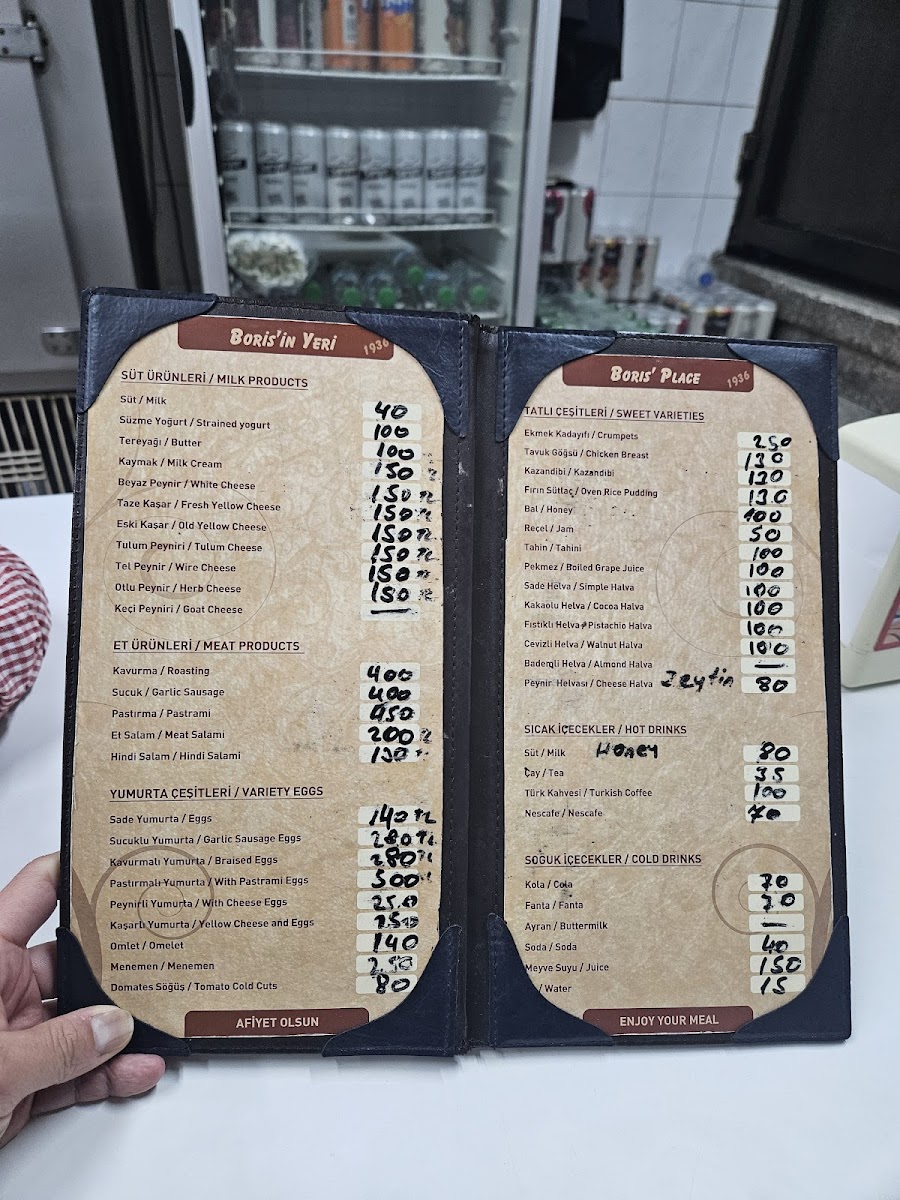 BORİS'İN YERİ 1936
SÜT ÜRÜNLERİ / MILK PRODUCTS
Süt / Milk 40
Süzme Yoğurt / Strained yogurt 100
Tereyağı / Butter 100
Kaymak / Milk Cream 150
Beyaz Peynir / White Cheese 150 TL
Taze Kaşar / Fresh Yellow Cheese 150 TL
Eski Kaşar / Old Yellow Cheese 150 TL
Tulum Peyniri / Tulum Cheese 150 TL
Tel Peynir / Wire Cheese 150
Otlu Peynir / Herb Cheese 150
Keçi Peyniri / Goat Cheese —
ET ÜRÜNLERİ / MEAT PRODUCTS
Kavurma / Roasting 400
Sucuk / Garlic Sausage 400
Pastırma / Pastrami 450
Et Salam / Meat Salami 200
Hindi Salam / Hindi Salami
YUMURTA ÇEŞİTLERİ / VARIETY EGGS
Sade Yumurta / Eggs 140 TL
Sucuklu Yumurta / Garlic Sausage Eggs 280 TL
Kavurmalı Yumurta / Braised Eggs 280 TL
Pastırmalı Yumurta / With Pastrami Eggs 300
Peynirli Yumurta / With Cheese Eggs 250
Kaşarlı Yumurta / Yellow Cheese and Eggs 250
Omlet / Omelet 140
Menemen / Menemen 250
Domates Söğüş / Tomato Cold Cuts 80
AFİYET OLSUN
BORIS' PLACE 1936
TATLI ÇEŞİTLERİ / SWEET VARIETIES
Ekmek Kadayıfı / Crumpets 250
Tavuk Göğsü / Chicken Breast 130
Kazandibi / Kazandibi 130
Fırın Sütlaç / Oven Rice Pudding 130
Bal / Honey 100
Reçel / Jam 50
Tahin / Tahini 100
Pekmez / Boiled Grape Juice 100
Sade Helva / Simple Halva 100
Kakaolu Helva / Cocoa Halva 100
Fıstıklı Helva / Pistachio Halva 100
Cevizli Helva / Walnut Halva 100
Bademli Helva / Almond Halva —
Peynir Helvası / Cheese Halva Zeytin 80
SICAK İÇECEKLER / HOT DRINKS
Süt / Milk HONEY 80
Çay / Tea 35
Türk Kahvesi / Turkish Coffee 100
Nescafe / Nescafe 70
SOĞUK İÇECEKLER / COLD DRINKS
Kola / Cola 70
Fanta / Fanta 70
Ayran / Buttermilk —
Soda / Soda 40
Meyve Suyu / Juice 150
/ Water 15
ENJOY YOUR MEAL